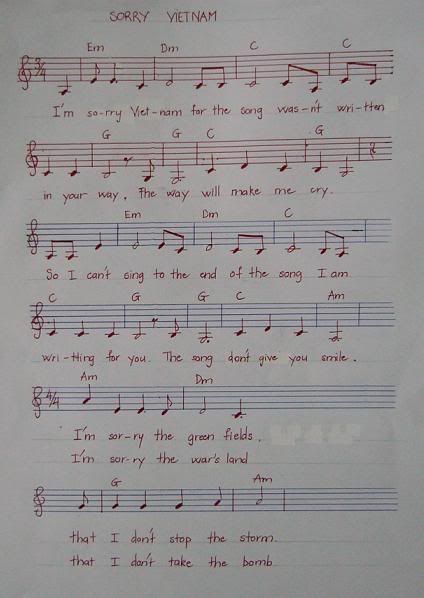 SORRY VIETNAM
Em Dm C C
3/4
I'm so-rry Viet-nam for the song was-n't wri-tten
G G C G
in your way. The way will make me cry.
Em Dm C
So I can't sing to the end of the song I am
C G G C Am
wri-tting for you. The song don't give you smile.
Am Dm
4/4
I'm sor-ry the green fields.
I'm sor-ry the war's land
G Am
that I don't stop the storm.
that I don't take the bomb.